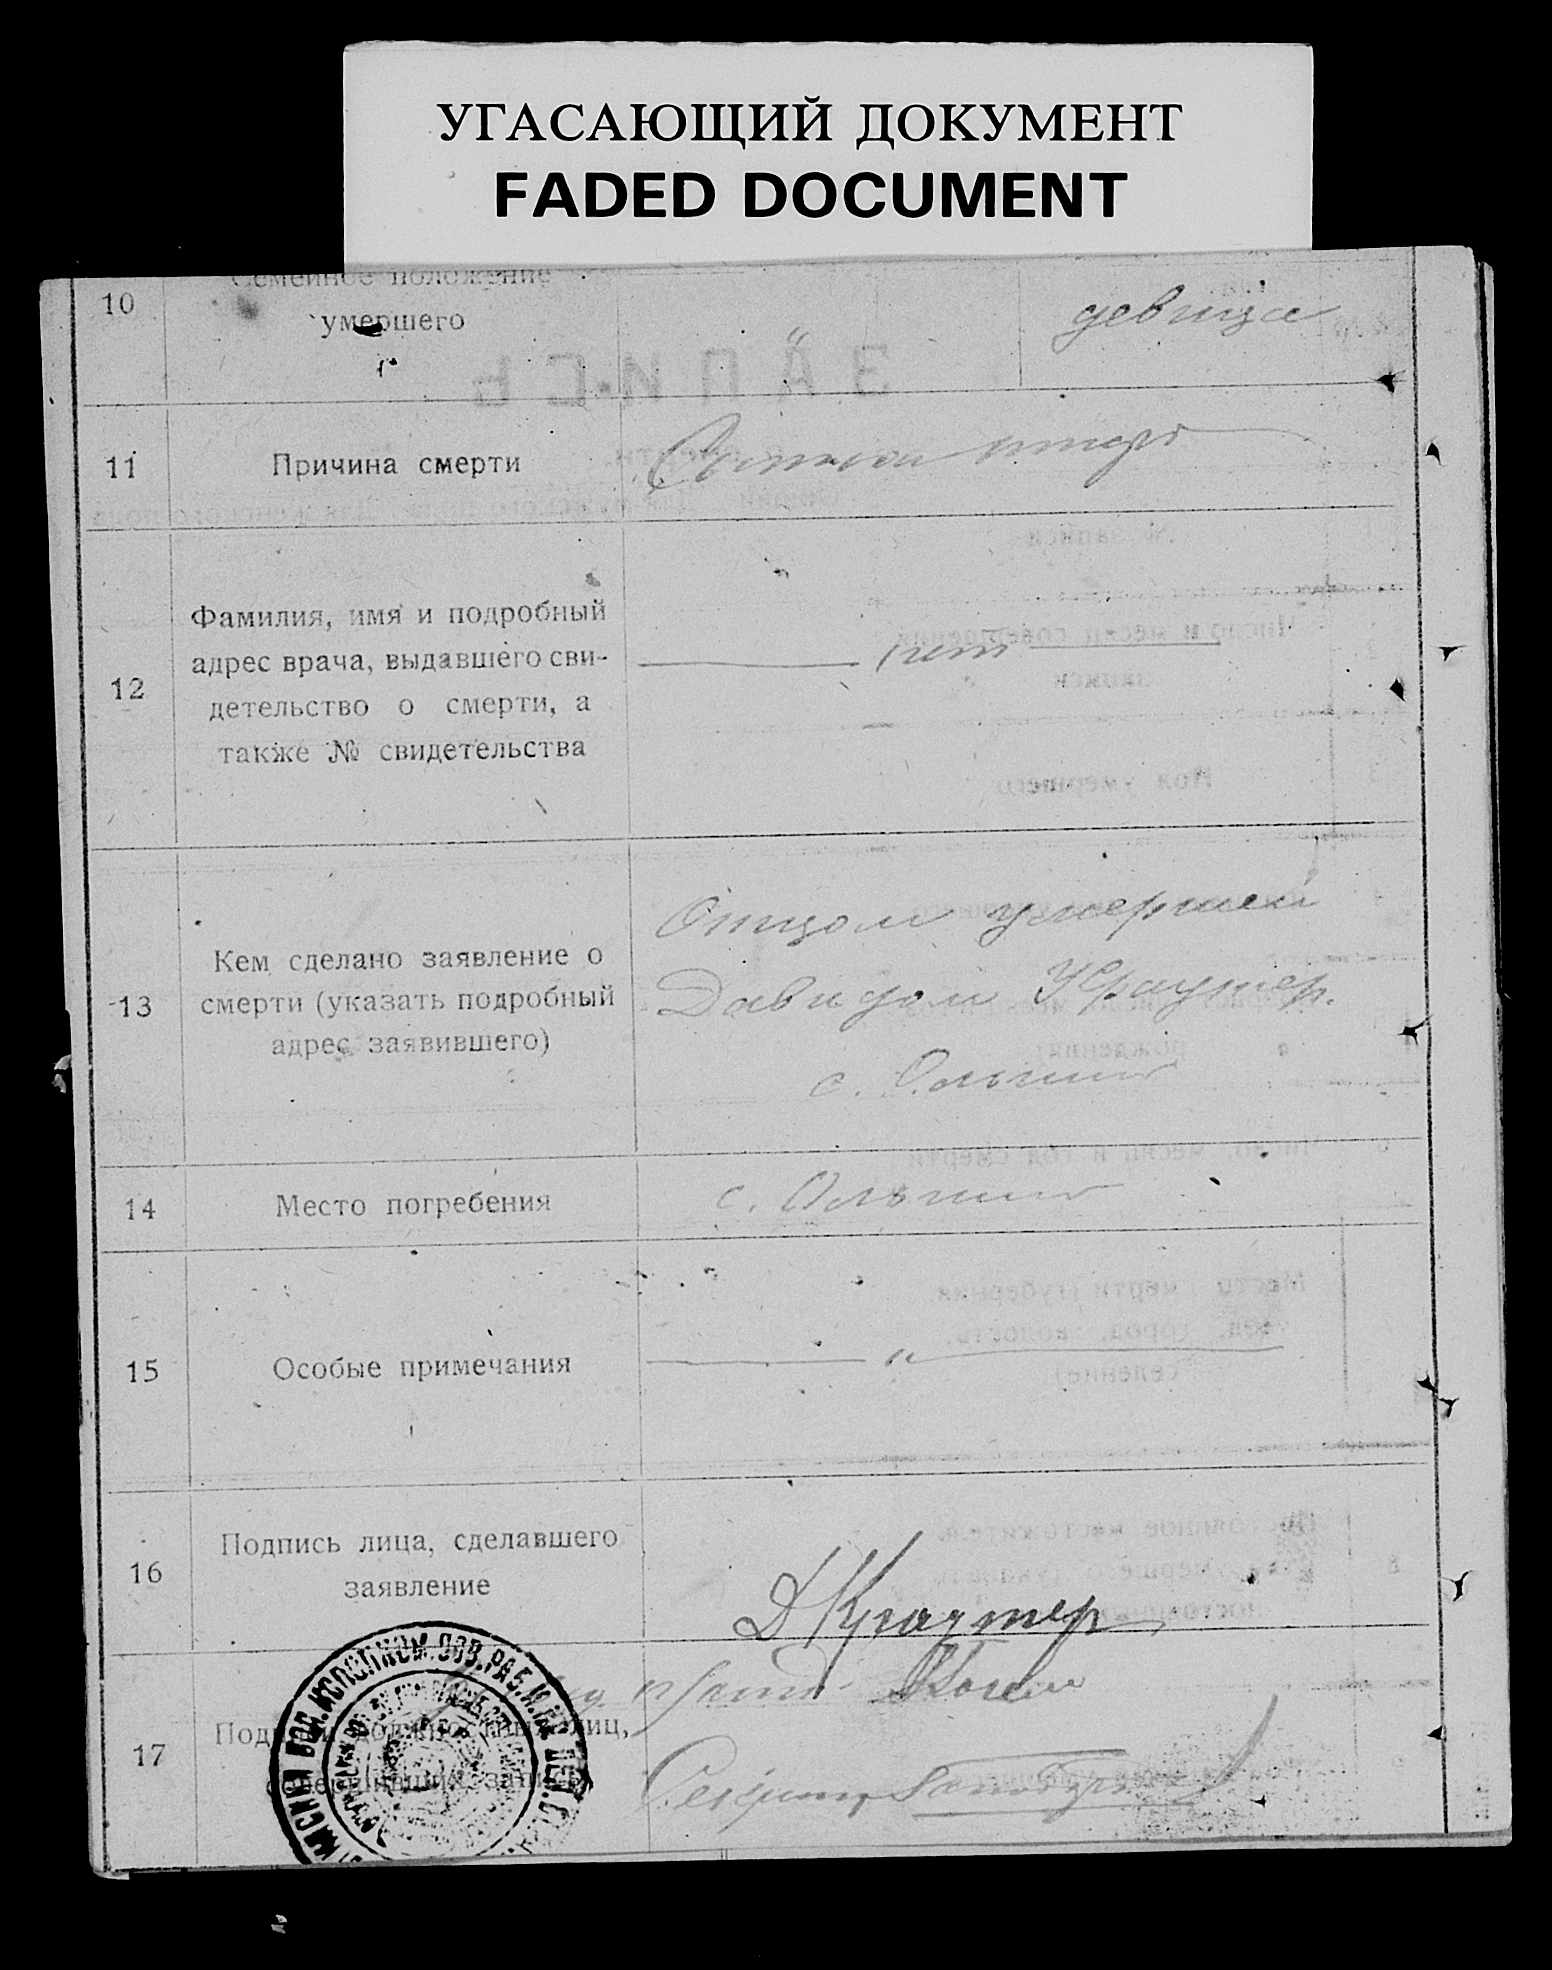 УГАСАЮЩИЙ ДОКУМЕНТ
FADED DOCUMENT
10
Семейное положение
умершего
девица
11
Причина смерти
тиф
12
Фамилия, имя и подробный
адрес врача, выдавшего сви-
детельство о смерти, а
также № свидетельства
нет
13
Кем сделано заявление о
смерти (указать подробный
адрес заявившего)
Отцом умершей
Давидом Краутер.
с. Ольгино
14
Место погребения
с. Ольгино
15
Особые примечания
"
16
Подпись лица, сделавшего
заявление
ДКраутер
17
Подписи должностных лиц,
совершивших запись
ВОЛ.ИСПОЛКОМ.СОВ.РАБ.